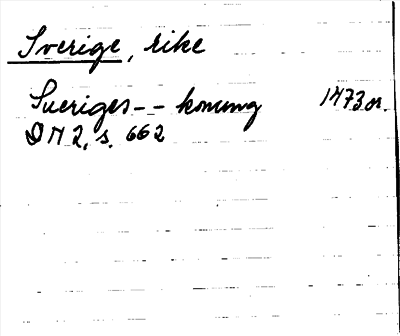 Sverige, rike
Sveriges -- konung 1473 or.
DN 2, s. 662